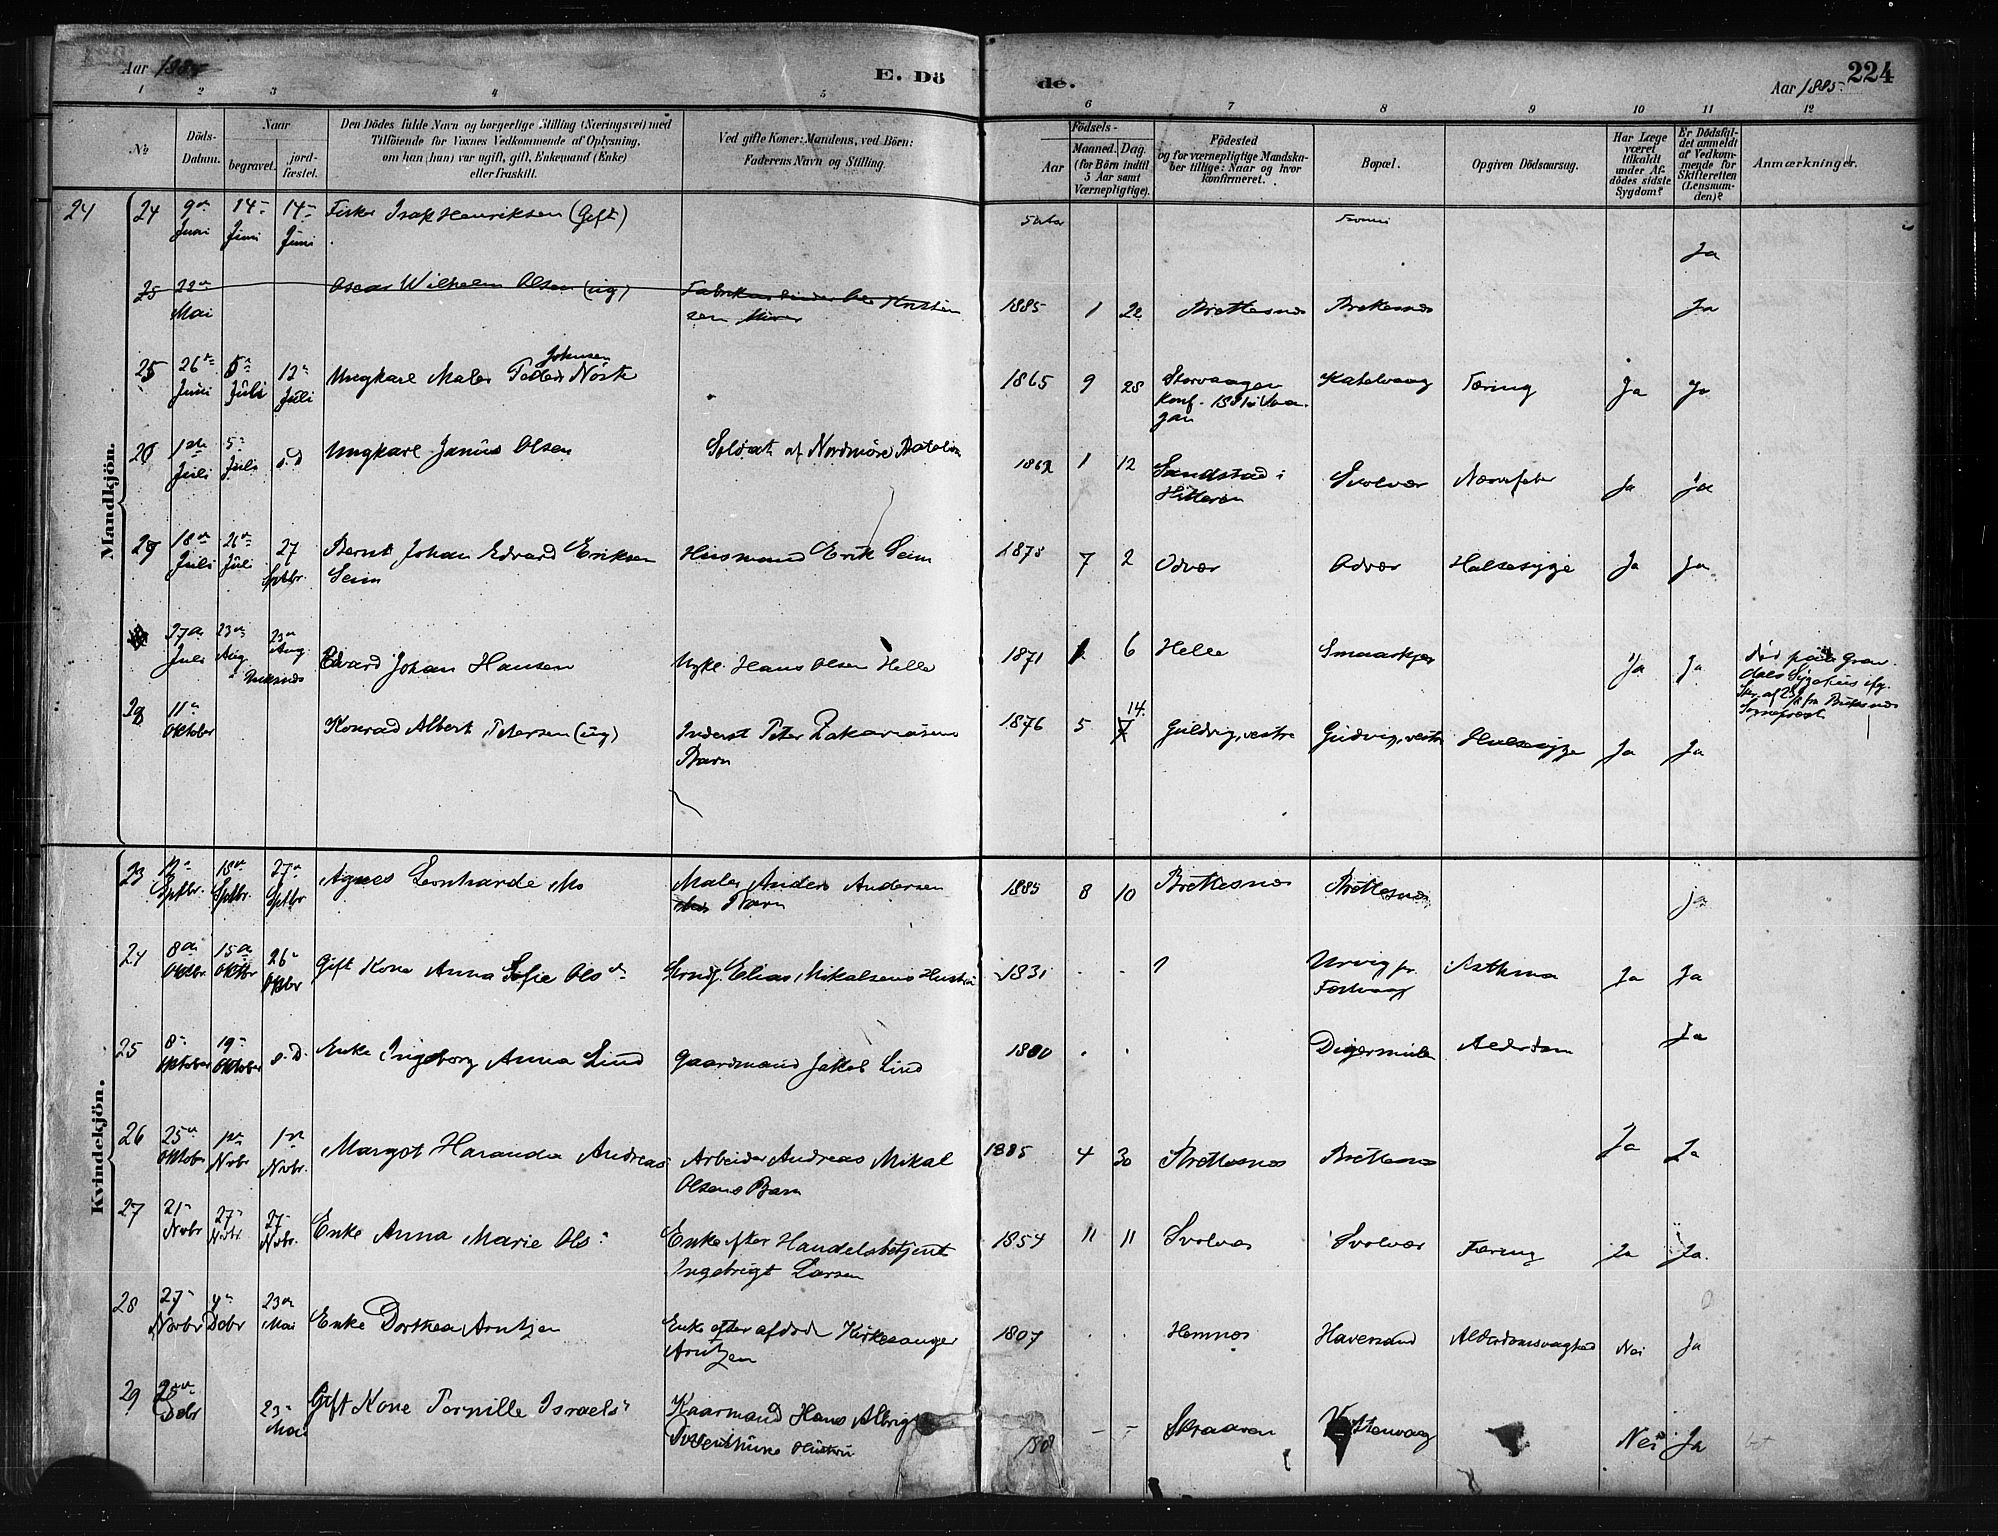 Aar 1885
E. Dö
de.
Aar 1885.
224
1 2 3 4 5 6 7 8 9 10 11 12
No
Döds-
Datum.
Naar
begravet.
jord-
fæstet.
Den Dödes fulde Navn og borgerlige Stilling (Næringsvei) med
Tilföiende for Voxnes Vedkommende af Oplysning,
om han (hun) var ugift, gift, Enkemand (Enke)
eller fraskilt.
Ved gifte Koner: Mandens, ved Börn:
Faderens Navn og Stilling.
Födsels-
Aar
Maaned. Dag.
(for Börn indtil
5 Aar samt
Værnepligtige).
Födested
og for værnepligtige Mandska-
ber tillige: Naar og hvor
konfirmeret.
Bopæl.
Opgiven Dödsaarsag.
Har Læge
været
tilkaldt
under Af-
dödes sidste
Sygdom?
Er Dödsfal-
det anmeldt
af Vedkom-
mende for
Skifteretten
(Lensman-
den)?
Anmærkninger.
Mandkjön.
24 24 9de Juni 14- Juni 14- Juni Fisker Isak Henriksen (Gift) Ja
25 22de Mai Oscar Wilhelm Olsen (ug) 1885 1 22 Brettesnæs Brettesnæs Ja
25 26de Juni 5te Juli 12te Juli Ungkarl Maler Peder Johnsen 1865 9 28 Storvaagen Tæring Ja Ja
26 1ste Juli 5- Juli s.D Ungkarl Janus Olsen Soldat af Nordmöre Batalion 1862 1 12 Sandstad i Hitteren Svolvær Nervefeber Ja Ja
18de Juli 26de Juli 27 Sptbr. Bernt Johan Edvard Eriksen Seim Husmand Erik Seim 7 2 Odvær Odvær Halssyge Ja Ja
27de Juli 23de Aug 23de Aug Edvard Johan Hansen Hans Olsen Helle 1871 6 Helle Smaaskjær Ja Ja
11te Oktober Konrad Albert Petersen (ug) Inderst Peter Zakariasens Barn 1876 5 14. Guldvig, vestre Guldvig, vestre Halssyge Ja Ja
Kvindekjön.
23 12- Sptbr. 18de Sptbr. 27de Sptbr Agnes Leonharde Mo Maler Anders Andersen Barn 1885 8 10 Brettesnæs Brettesnæs ja
24 8de Oktbr. 15de Oktbr 26- Oktbr Gift Kone Anna Sofie Olsdr Elias Mikalsens Hustru 1831 - - ? Urvig Asthma Ja Ja
25 8- Oktober 19- Oktober s.D. Enke Ingeborg Anna Lind Gaardmand Jakob Lind 1800 Digermulen Alderdom Ja
26 25de Oktobr 1ste Novbr 1ste Novbr. Margot Haranda Andreas Arbeider Andreas Mikal Olsens Barn 1885 4 30 Brettesnæs Brettesnæs Ja Ja
27 21- Novbr 27- Novbr 27- Novbr. Enke Anna Marie Ols- Enke efter Handelsbetjent Ingebrigt Larsen 1854 11 11 Svolvær Svolvær Tæring Ja Ja.
28 27- Novbr 4de Debr 23de Mai Enke Dorthea Arntzen Enke efter afdöd Kirkesanger Arntzen 1807 Hemnæs Havesand Alderdomsvaghed Nei Ja
29 25de Debr 23- Mai Gift Kone Pernille Israels- Kaarmand Hans Albrigt Hustru 180 - - Skraaven Nei Ja